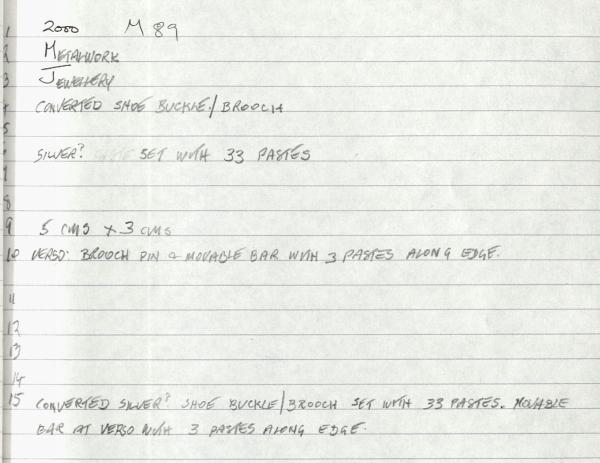 1 2000 M 89
2 METALWORK
3 JEWELLERY
4 CONVERTED SHOE BUCKLE/BROOCH
5
6 SILVER? SET WITH 33 PASTES
7
8
9 5 CMS × 3 CMS
10 VERSO: BROOCH PIN & MOVABLE BAR WITH 3 PASTES ALONG EDGE.
11
12
13
14
15 CONVERTED SILVER? SHOE BUCKLE/BROOCH SET WITH 33 PASTES. MOVABLE
BAR AT VERSO WITH 3 PASTES ALONG EDGE.